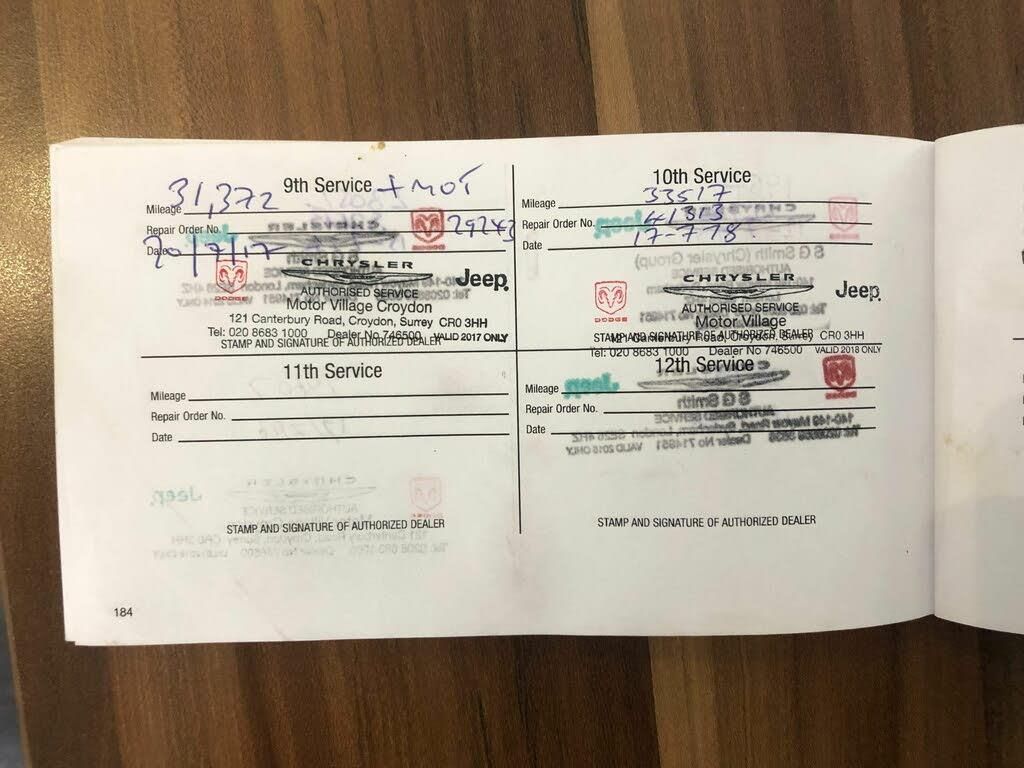 9th Service + MOT
Mileage 31,372
Repair Order No. 29243
Date 20/7/17
CHRYSLER
Jeep
DODGE
AUTHORISED SERVICE
Motor Village Croydon
121 Canterbury Road, Croydon, Surrey CR0 3HH
Tel: 020 8683 1000 Dealer No 746500 VALID 2017 ONLY
STAMP AND SIGNATURE OF AUTHORIZED DEALER
10th Service
Mileage 33517
Repair Order No. 41313
Date 17-7-18
CHRYSLER
Jeep
DODGE
AUTHORISED SERVICE
Motor Village
STAMP AND SIGNATURE OF AUTHORIZED DEALER
121 Canterbury Road, Croydon, Surrey CR0 3HH
Tel: 020 8683 1000 Dealer No 746500 VALID 2018 ONLY
11th Service
Mileage
Repair Order No.
Date
STAMP AND SIGNATURE OF AUTHORIZED DEALER
12th Service
Mileage
Repair Order No.
Date
STAMP AND SIGNATURE OF AUTHORIZED DEALER
184